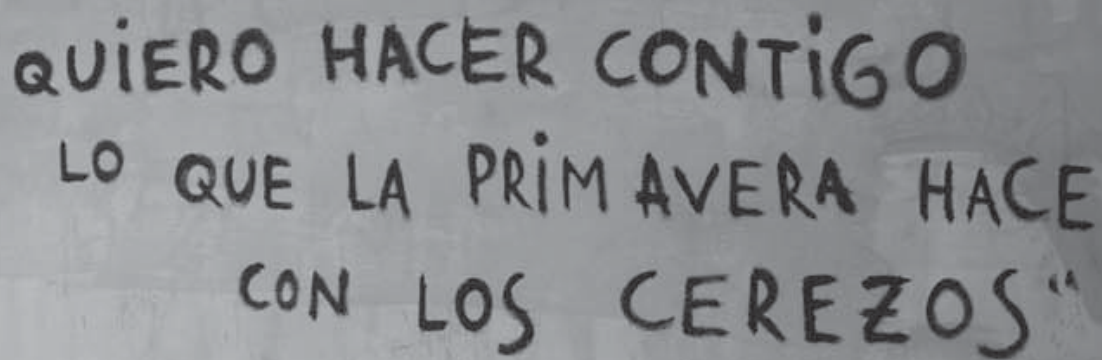 QUiERO HACER CONTiGO
LO QUE LA PRiMAVERA HACE
CON LOS CEREZOS"